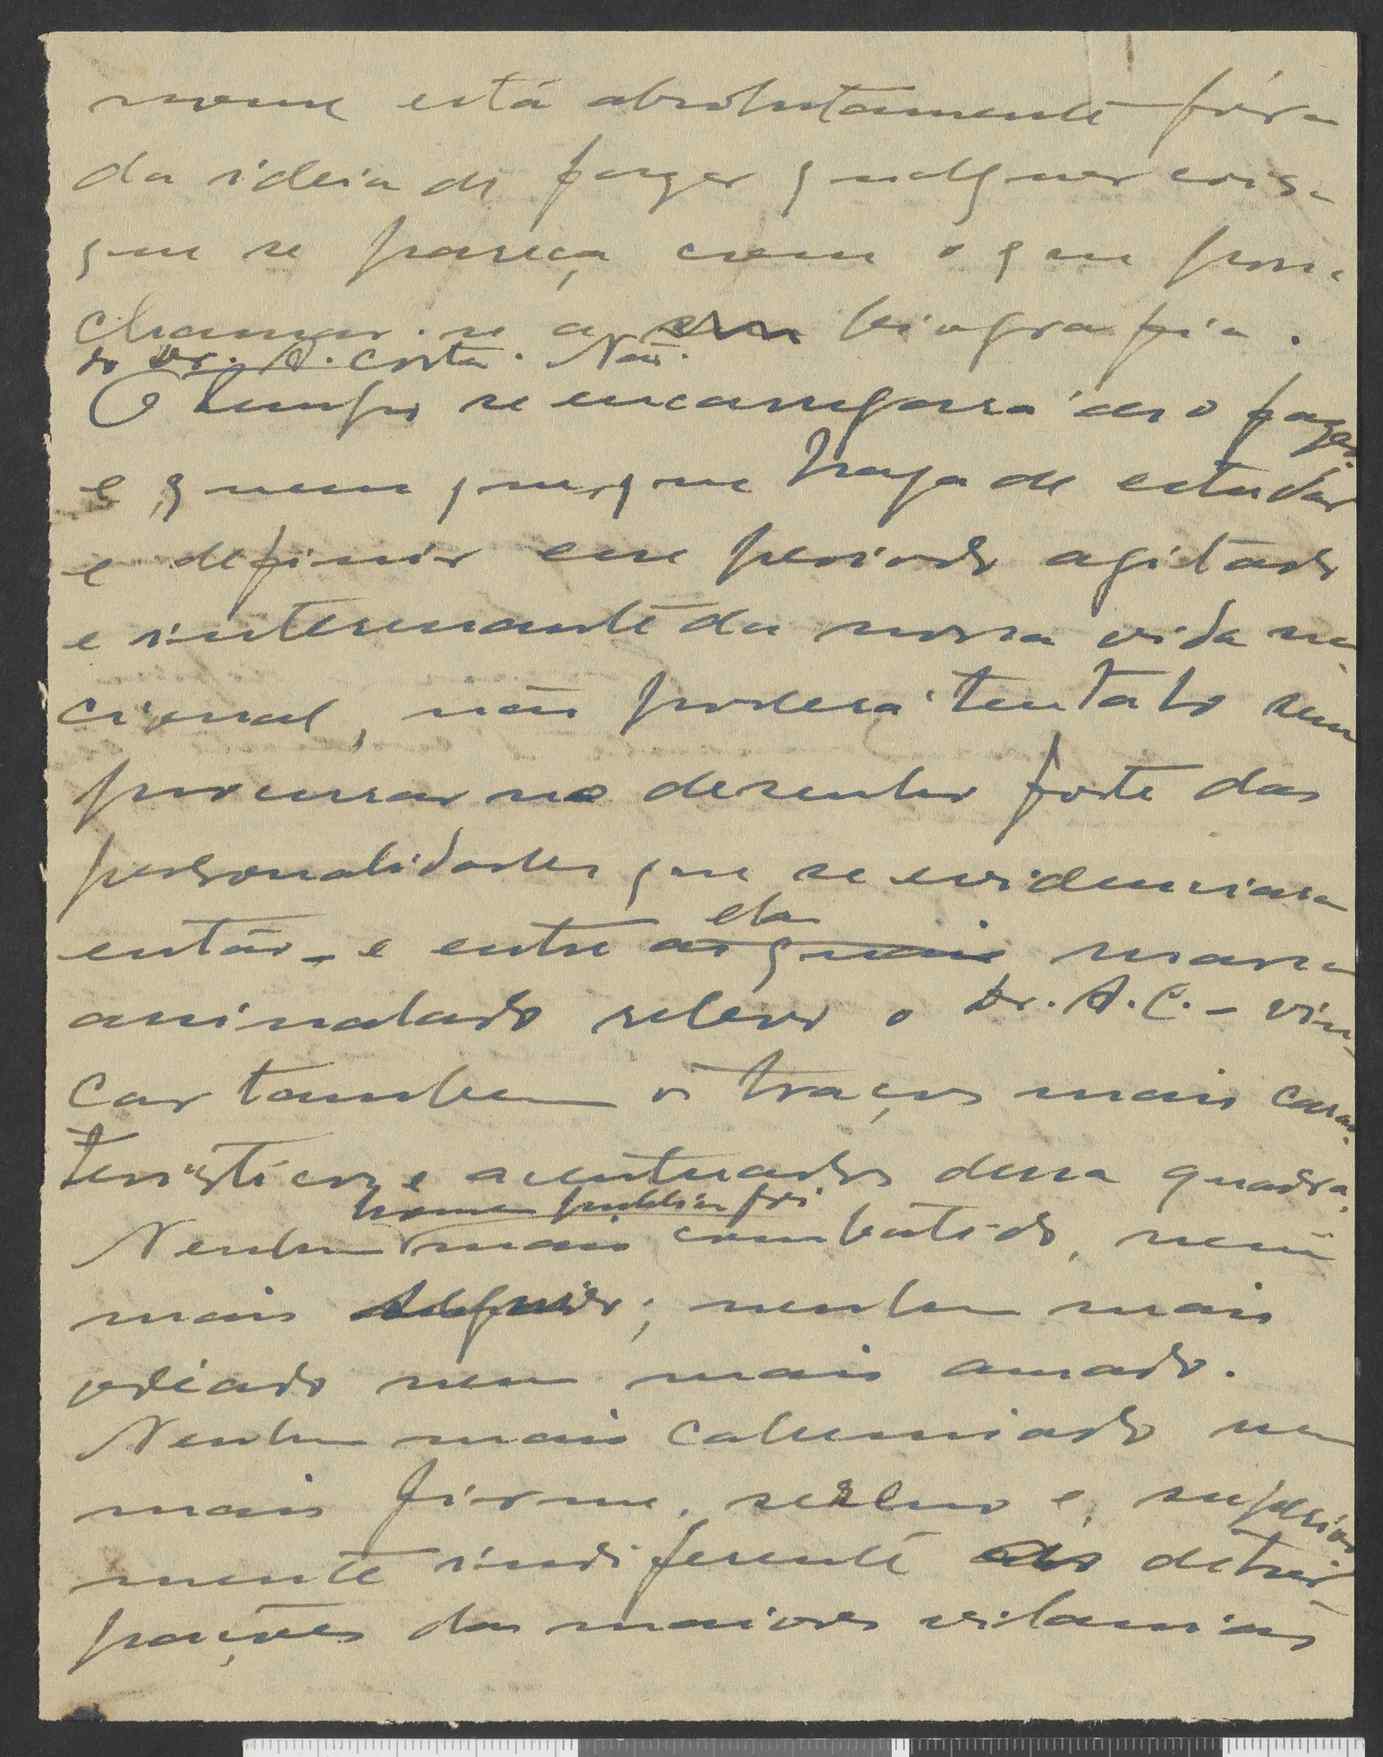 nome está absolutamente fóra
da ideia de fazer qualquer coisa
que se pareça com o que possa
chamar-se a sua biografia.
do Dr. A. Costa. Não.
O tempo se encarregará de o fazer
e quem quer que haja de estudar
e definir esse periodo agitado
e interessante da nossa vida na-
cional, não poderá tental-o sem
procurar no desenho forte das
personalidades que se evidenciaram
então - e entre as quais elas marca
assinalado relevo o Dr. A. C. - vin-
car tambem os traços mais carac-
teristicos e acentuados dessa quadra.
Nenhum homem publico foi mais combatido, nem
mais seguido; nenhum mais
odeado nem mais amado.
Nenhum mais caluniado nem
mais firme, sereno e, superior-
mente indiferente ás detur-
pações das maiores vilanias